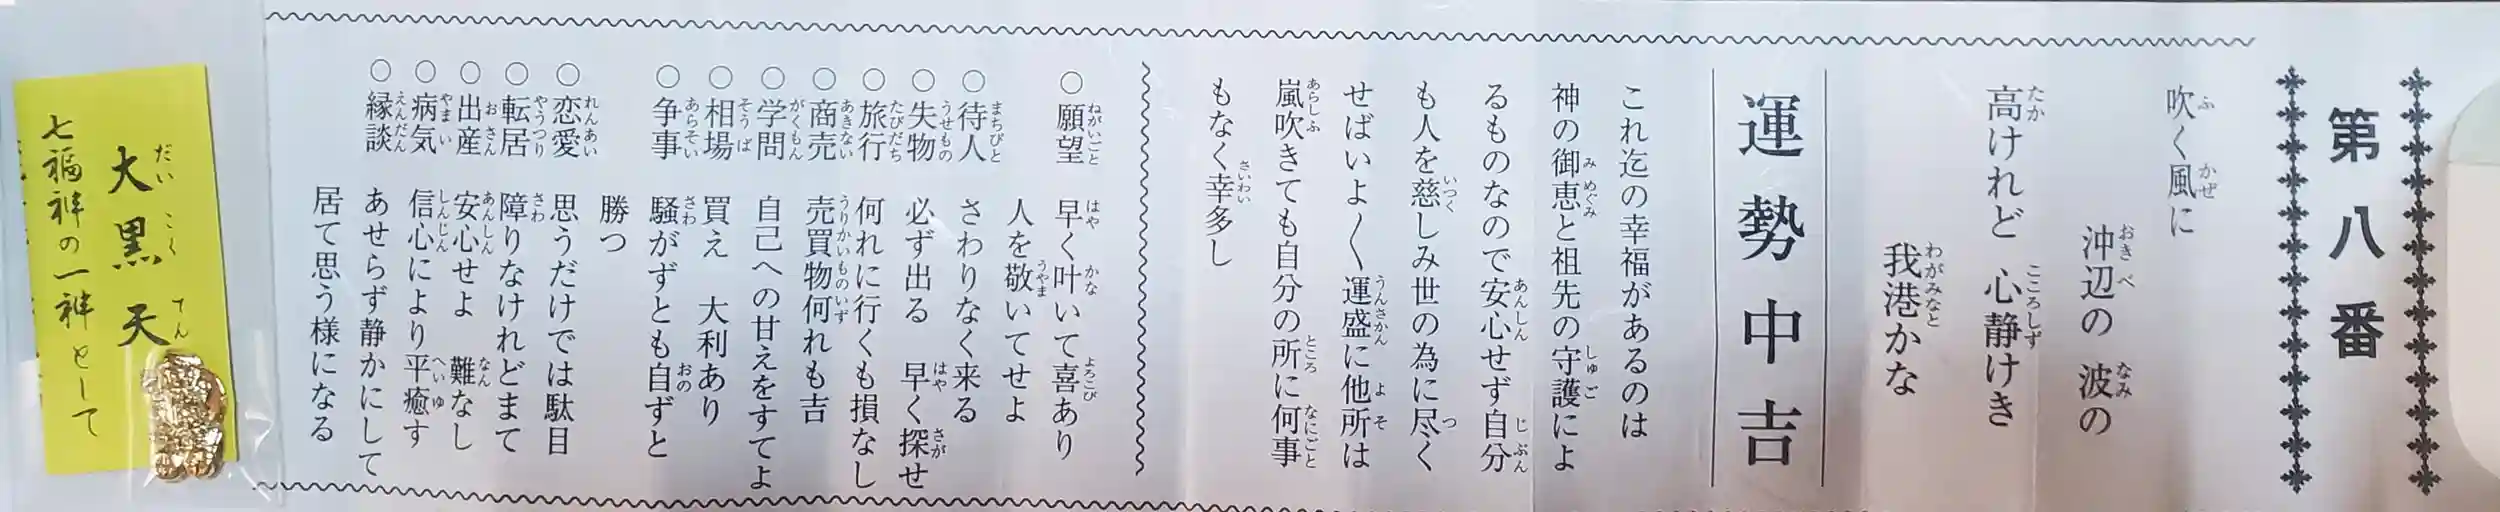 第八番
吹く風に
沖辺の 波の
高けれど 心静けき
我港かな
運勢中吉
これ迄の幸福があるのは
神の御恵と祖先の守護によ
るものなので安心せず自分
も人を慈しみ世の為に尽く
せばいよ〱運盛に他所は
嵐吹きても自分の所に何事
もなく幸多し
○願望 早く叶いて喜あり
人を敬いてせよ
○待人 さわりなく来る
○失物 必ず出る 早く探せ
○旅行 何れに行くも損なし
○商売 売買物何れも吉
○学問 自己への甘えをすてよ
○相場 買え 大利あり
○争事 騒がずとも自ずと
勝つ
○恋愛 思うだけでは駄目
○転居 障りなけれどまて
○出産 安心せよ 難なし
○病気 信心により平癒す
○縁談 あせらず静かにして
居て思う様になる
大黒天
七福神の一神として